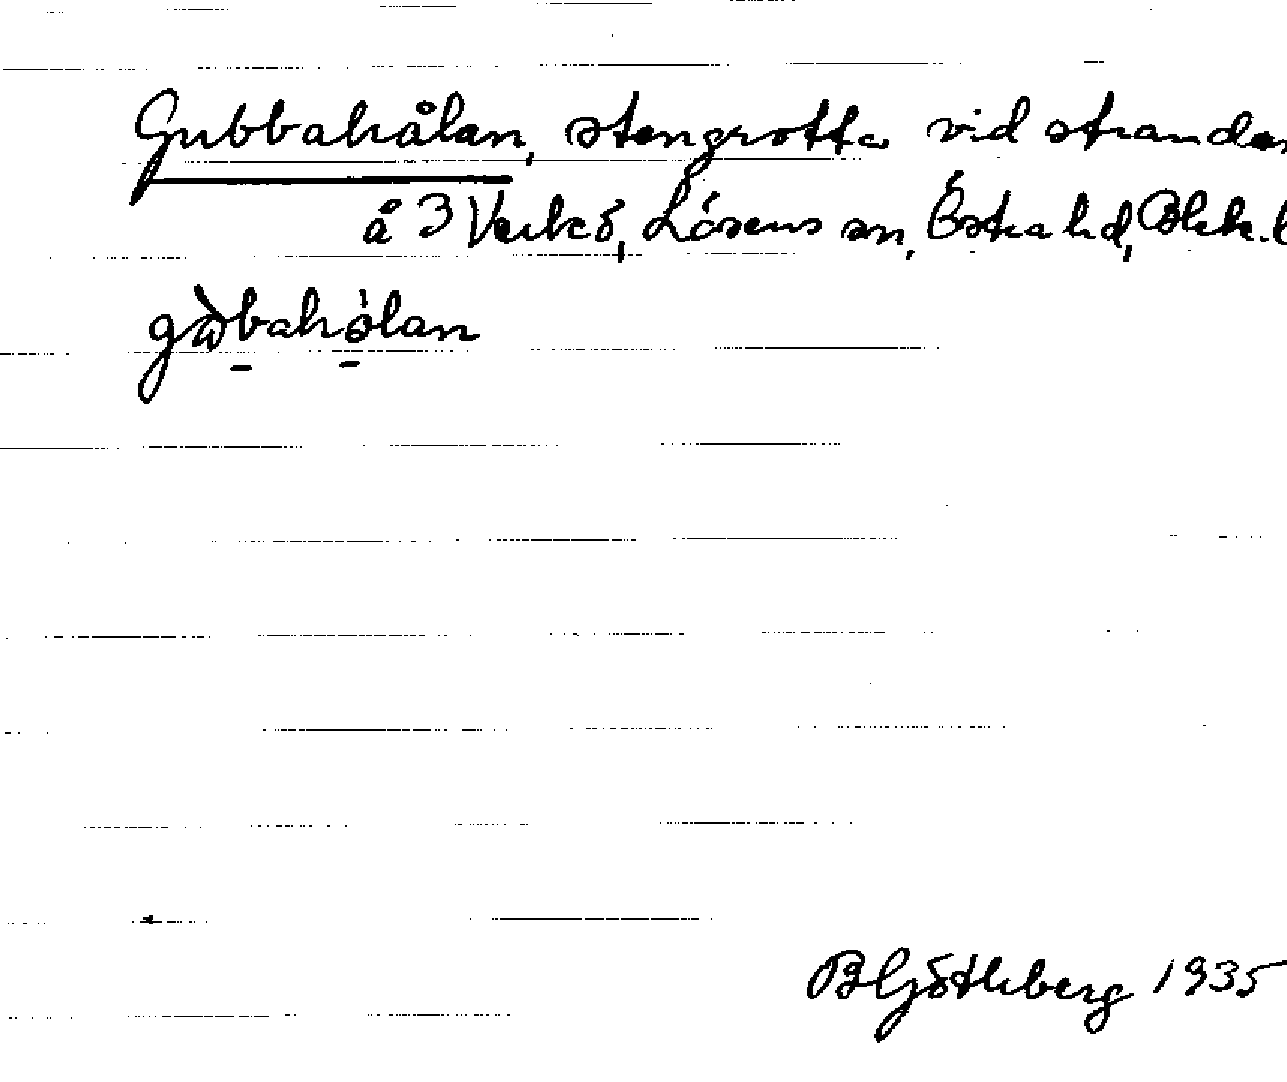 Gubbahålan, stengrotta vid stranden
å 3 Verkö, Lösens sn, Östra hd, Blek. l
gòbahòlan
B Götlberg 1935